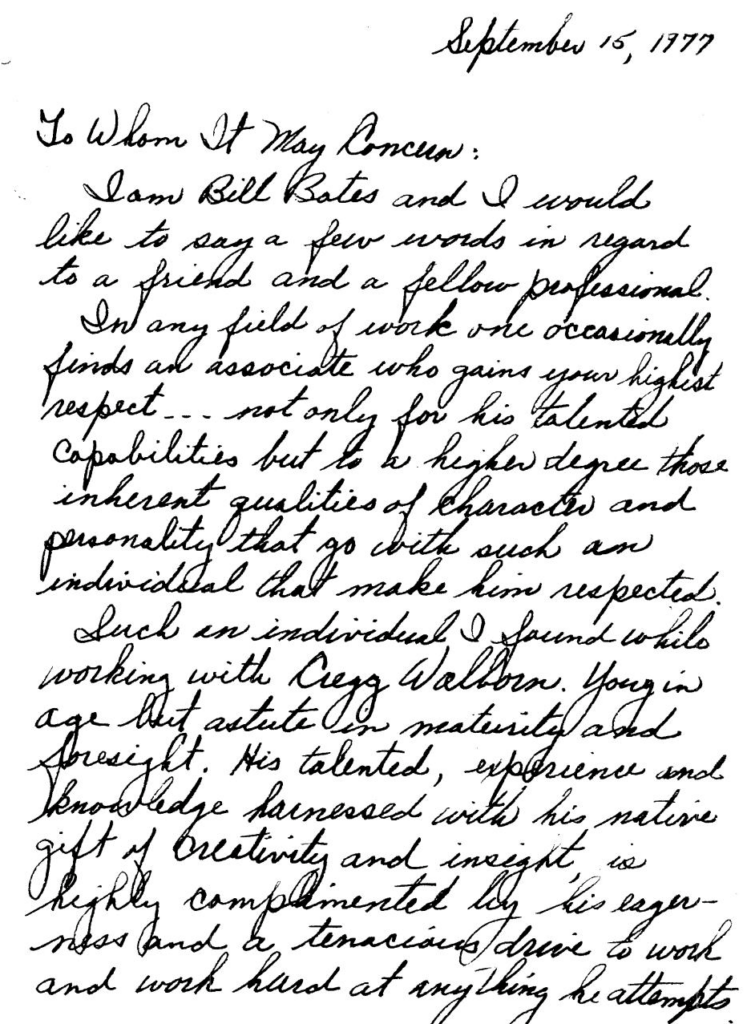 September 15, 1977
To Whom It May Concern:
I am Bill Bates and I would
like to say a few words in regard
to a friend and a fellow professional.
In any field of work one occasionally
finds an associate who gains your highest
respect--- not only for his talented
capabilities but to a higher degree those
inherent qualities of character and
personality that go with such an
individual that make him respected.
Such an individual I found while
working with Cregg Walborn. Youg in
age but astute in maturity and
foresight. His talented, experience and
knowledge harnessed with his native
gift of creativity and insight, is
highly complimented by his eager-
ness and a tenacious drive to work
and work hard at anything he attempts.